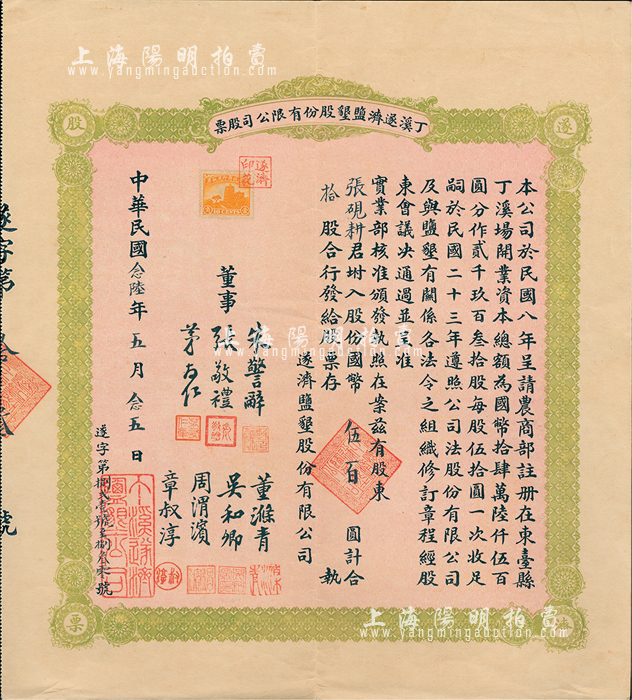 上海陽明拍賣
www.yangmingauction.com
丁溪遂濟鹽墾股份有限公司股票
遂
股
本公司於民國八年呈請農商部註册在東臺縣
丁溪場開業資本總額為國幣拾肆萬陸仟伍百
圓分作貳千玖百叁拾股每股伍拾圓一次收足
嗣於民國二十三年遵照公司法股份有限公司
及與鹽墾有關係各法令之組織修訂章程經股
東會議决通過並呈准
實業部核准頒發執照在案茲有股東
張硯耕君坿入股份國幣 伍百 圓計合
拾股合行發給股票存 執
遂濟鹽墾股份有限公司
遂濟
印花
董事
朱警辭
張敬禮
董滌青
吳和卿
周渭濱
章叔淳
中華民國念陸年五月念五日
遂字第
號
票
上海陽明拍賣
www.yangmingauction.com
上海陽明拍賣
www.yangmingauction.com